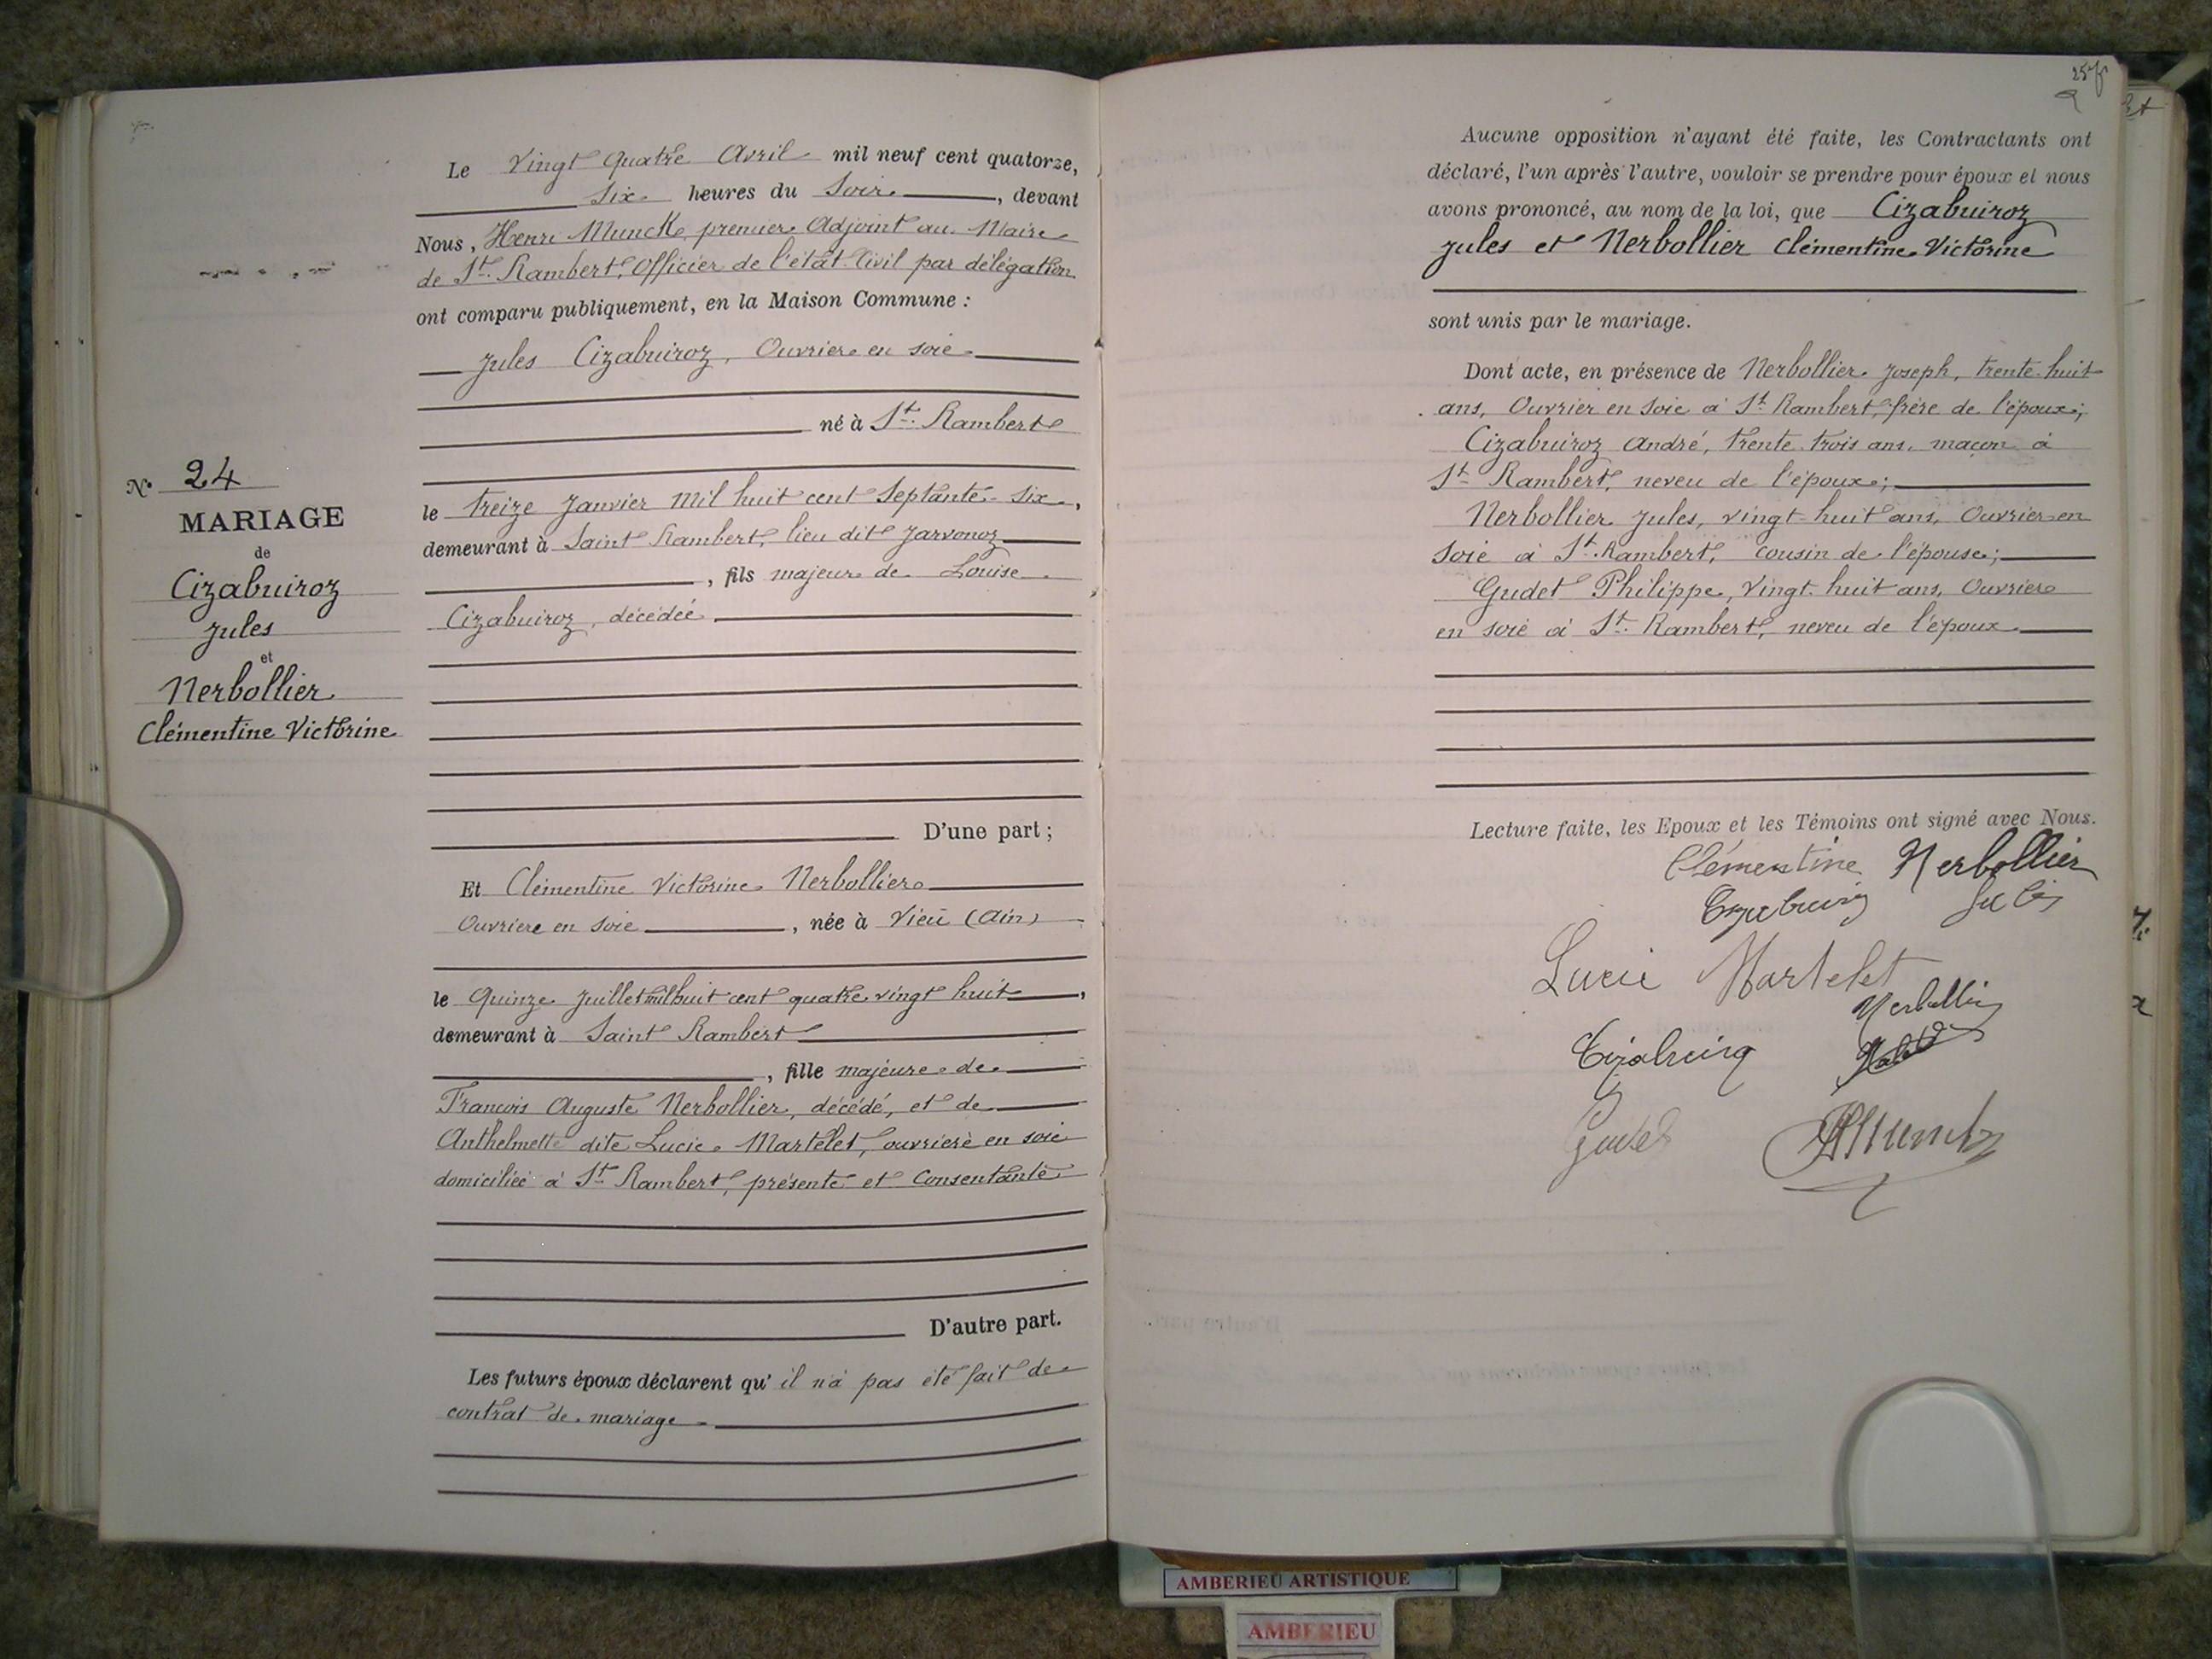 Le Vingt quatre Avril mil neuf cent quatorze,
Six heures du Soir, devant
Nous, Henri Munck premier Adjoint au Maire
de St. Rambert, Officier de l'état Civil par délégation
ont comparu publiquement, en la Maison Commune :
Jules Cizabuiroz, Ouvrier en soie
né à St. Rambert
le treize Janvier Mil huit cent Septante-Six,
demeurant à Saint Rambert, lieu dit Jarvonoz
, fils majeur de Louise
Cizabuiroz, décédée
D'une part ;
Et Clémentine Victorine Nerbollier
Ouvrière en soie, née à Vieu (Ain)
le Quinze Juillet mil huit cent quatre vingt huit,
demeurant à Saint Rambert
, fille majeure de
François Auguste Nerbollier, décédé, et de
Anthelmette dite Lucie Martelet, ouvrière en soie
domiciliée à St Rambert, présente et Consentante
D'autre part.
Les futurs époux déclarent qu' il n'a pas été fait de
contrat de mariage
No 24
MARIAGE
de
Cizabuiroz
Jules
et
Nerbollier
Clémentine Victorine
Aucune opposition n'ayant été faite, les Contractants ont
déclaré, l'un après l'autre, vouloir se prendre pour époux et nous
avons prononcé, au nom de la loi, que Cizabuiroz
Jules et Nerbollier Clémentine Victorine
sont unis par le mariage.
Dont acte, en présence de Nerbollier Joseph, trente huit
ans, Ouvrier en Soie à St. Rambert, frère de l'époux ;
Cizabuiroz André, trente trois ans, maçon à
St Rambert, neveu de l'époux ;
Nerbollier Jules, vingt-huit ans, Ouvrier en
Soie à St. Rambert, cousin de l'épouse ;
Gudet Philippe, Vingt huit ans, Ouvrier
en soie à St. Rambert, neveu de l'époux
Lecture faite, les Epoux et les Témoins ont signé avec Nous.
Clémentine Nerbollier
Lucie Martelet
Nerbollier
Gudet
AMBERIEU ARTISTIQUE
AMBERIEU